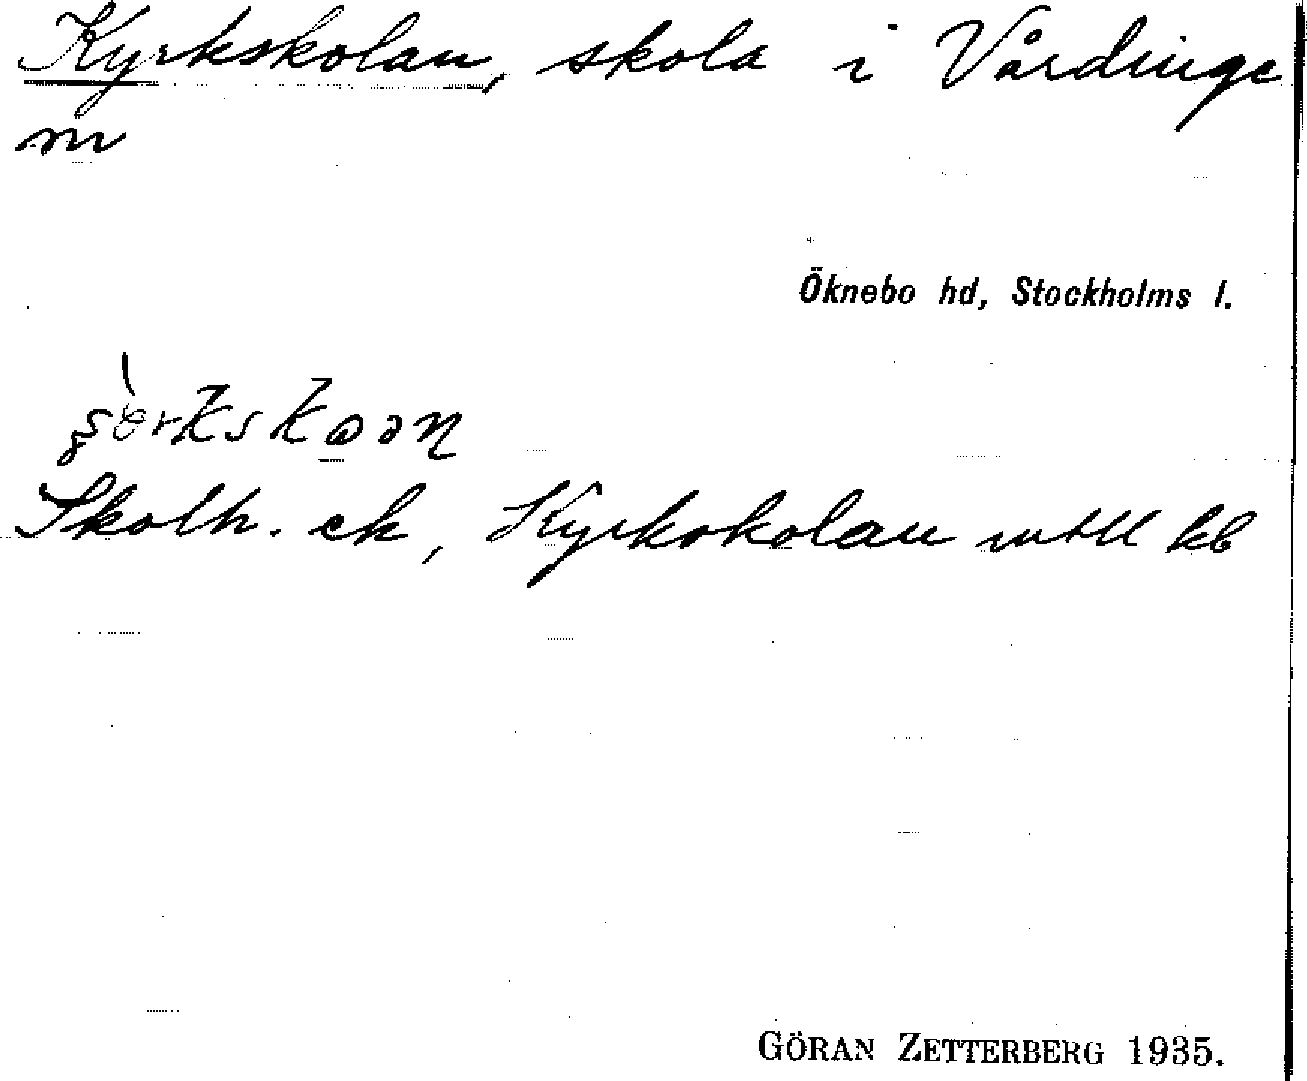 Kyrkskolan, skola i Vårdinge
sn
Öknebo hd, Stockholms l.
Skolh. ek, Kyrkskolan kb
GÖRAN ZETTERBERG 1935.